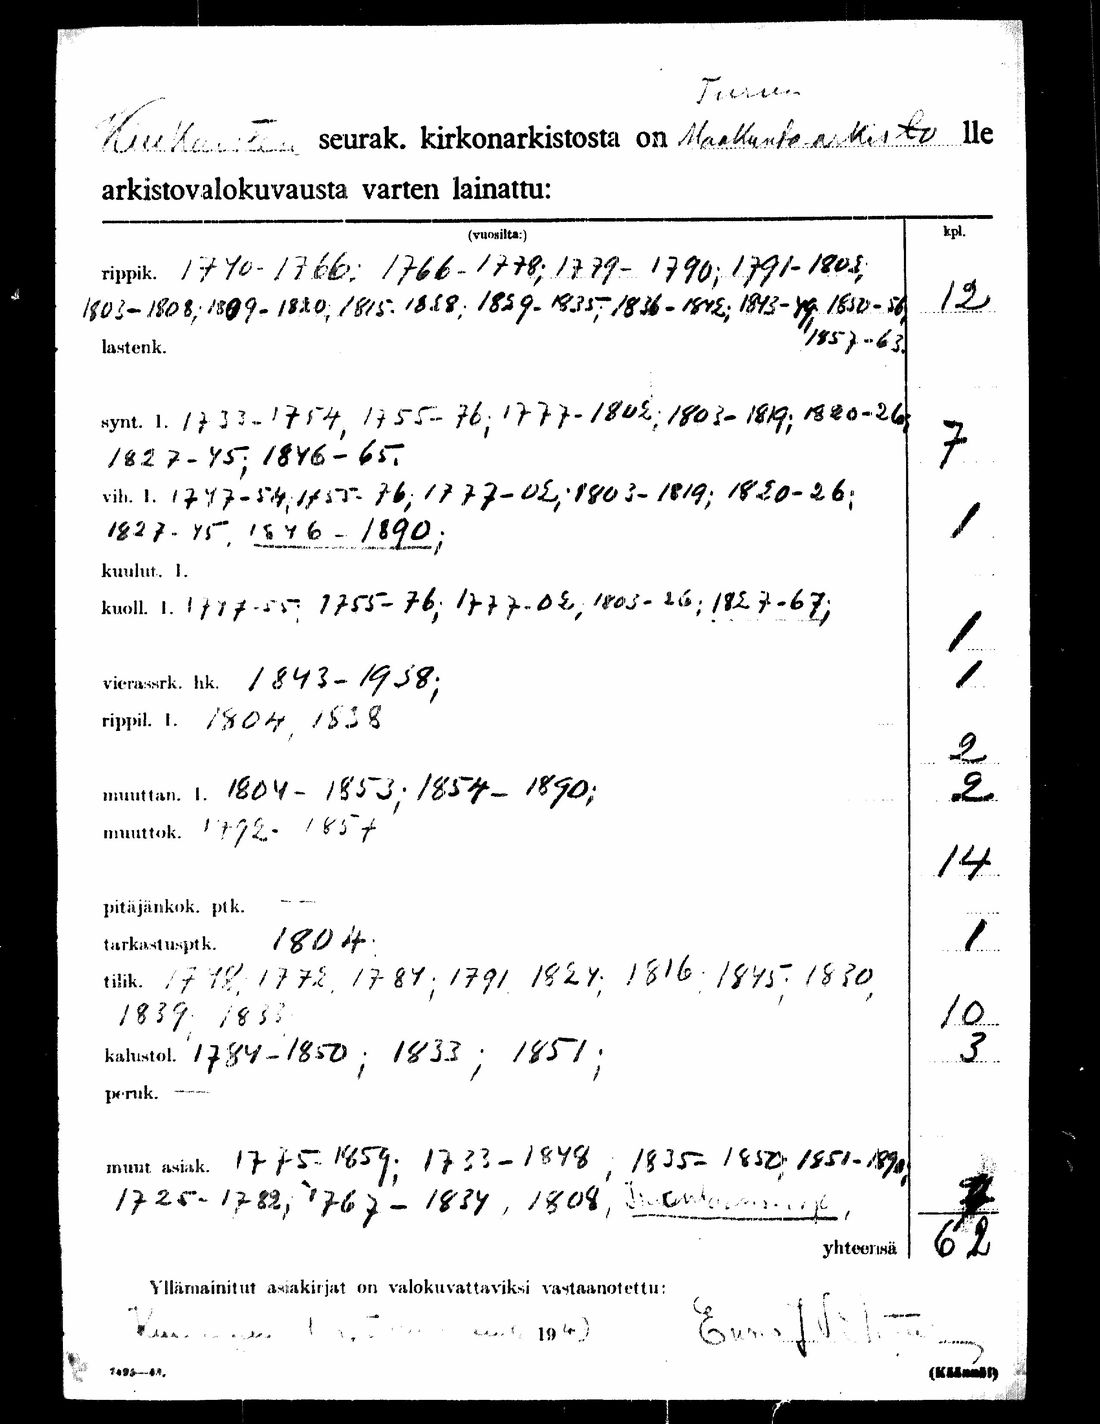 Turun
seurak. kirkonarkistosta on Maakunta-arkisto lle
arkistovalokuvausta varten lainattu:
(vuosilta:) kpl.
rippik. 1740-1766; 1766-1778; 1779-1790; 1791-1802;
1803-1808; 1809-1820; 1815-1828; 1829-1835; 1836-1842; 1843-49; 1850-56, 12
1857-63.
lastenk.
synt. l. 1733-1754, 1755-76; 1777-1802; 1803-1819; 1820-26;
1827-45; 1846-65. 7
vih. l. 1747-54; 1755-76; 1777-02; 1803-1819; 1820-26;
1827-45, 1846-1890; 1
kuulut. l.
kuoll. l. 1747-55; 1755-76; 1777-02; 1803-26; 1827-67;
1
vierassrk. hk. 1843-1938; 1
rippil. l. 1804, 1838
2
muuttan. l. 1804-1853; 1854-1890; 2
muuttok. 1792-1857
14
pitäjänkok. ptk. —
tarkastusptk. 1804. 1
tilik. 1748; 1772, 1784; 1791 1824; 1816; 1845; 1830,
1839; 1833 10
kalustol. 1784-1850; 1833; 1851; 3
peruk. —
muut asiak. 1775-1859; 1733-1848, 1835-1850; 1851-1890;
1725-1782; 1767-1834, 1808, 7
yhteensä 62
Yllämainitut asiakirjat on valokuvattaviksi vastaanotettu:
194
7495—48. (Käännä!)